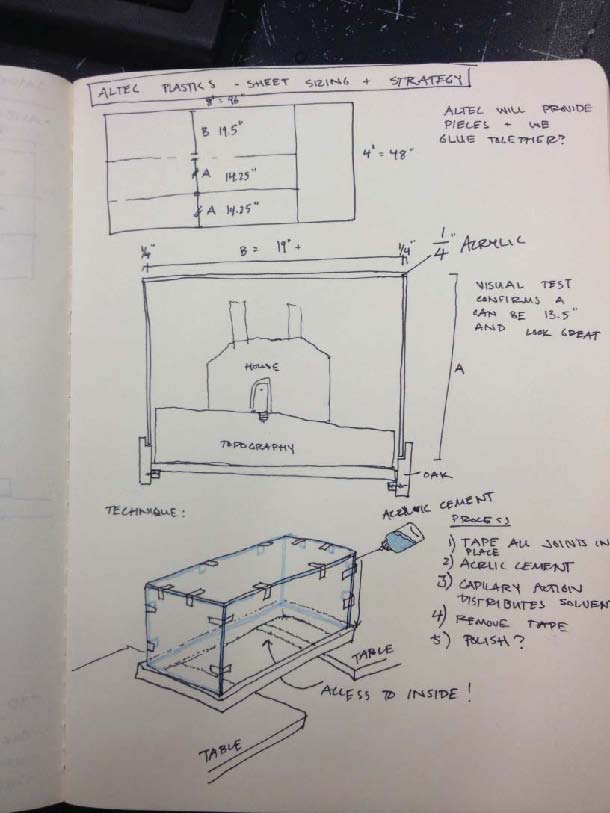 ALTEC PLASTICS - SHEET SIZING + STRATEGY
8' = 96"
B 19.5"
A 14.25"
A 14.25"
4' = 48"
ALTEC WILL PROVIDE
PIECES + WE
GLUE TOGETHER?
1/4"
B = 19" +
1/4"
1/4" ACRYLIC
VISUAL TEST
CONFIRMS A
CAN BE 13.5"
AND LOOK GREAT
A
HOUSE
TOPOGRAPHY
OAK
TECHNIQUE:
ACRYLIC CEMENT
PROCESS
1) TAPE ALL JOINTS IN
PLACE
2) ACRLIC CEMENT
3) CAPILARY ACTION
DISTRIBUTES SOLVENT
4) REMOVE TAPE
5) POLISH?
TABLE
ACCESS TO INSIDE!
TABLE